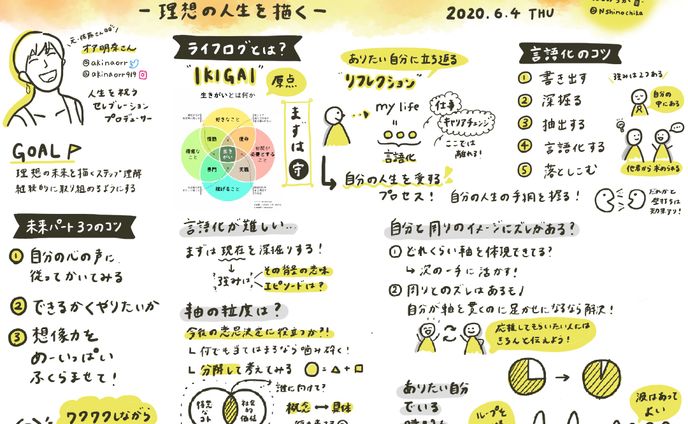 - 理想の人生を描く -
2020.6.4 THU
@Nshimochika
オア明奈さん
@akinaorr
@akinaorr919
人生を祝う
セレブレーション
プロデューサー
GOAL
理想の未来を描くステップ理解
継続的に取り組めるようにする
未来パート3つのコツ
① 自分の心の声に
従ってかいてみる
② できるかぐやりたいか
③ 想像力を
めーいっぱい
ふくらませて!
ワクワクしながら
ライフログとは?
"IKIGAI"
原点
生きがいとは何か
好きなこと
情熱
使命
得意なこと
生きがい
社会が必要とすること
専門
天職
稼げること
まずは守
ありたい自分に立ち返る
"リフレクション"
my life
仕事
キャリアチェンジ
言語化
ここでは
離れる!
自分の人生を愛する
プロセス!
自分の人生の手綱を握る!
言語化のコツ
① 書き出す
② 深掘る
③ 抽出する
④ 言語化する
⑤ 落としこむ
強みは2つある
自分の
中にある
他者から求められる
だれかと
壁打ちは
効果アリ!
言語化が難しい…
まずは現在を深掘りする!
強みは
その能室の意味
エピソードは?
軸の粒度は?
今後の意思決定に役立つか?!
何でも当てはまるなら噛み砕く!
分解して考えてみる
○=△+□
誰に向けて?
得意なコト
社会的価値
概念 ↔ 具体
自分と周りのイメージにズレがある?
① どれくらい軸を体現できてる?
↳ 次の一手に活かす!
② 周りとのズレはあるも♪
自分が軸を貫くのに足かせになるなら解決!
応援してもらいたい人には
きちんと伝えよう!
ありたい自分
でいる
ループを
波はあって
よい